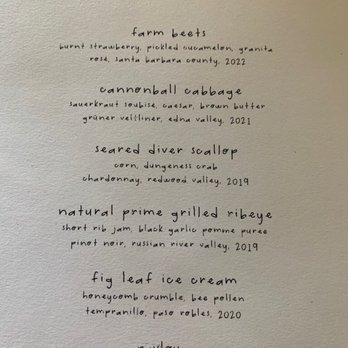 farm beets
burnt strawberry, pickled cucamelon, granita
rosé, santa barbara county, 2022
cannonball cabbage
sauerkraut soubise, caesar, brown butter
grüner veltliner, edna valley, 2021
seared diver scallop
corn, dungeness crab
chardonnay, redwood valley, 2019
natural prime grilled ribeye
short rib jam, black garlic pomme puree
pinot noir, russian river valley, 2019
fig leaf ice cream
honeycomb crumble, bee pollen
tempranillo, paso robles, 2020